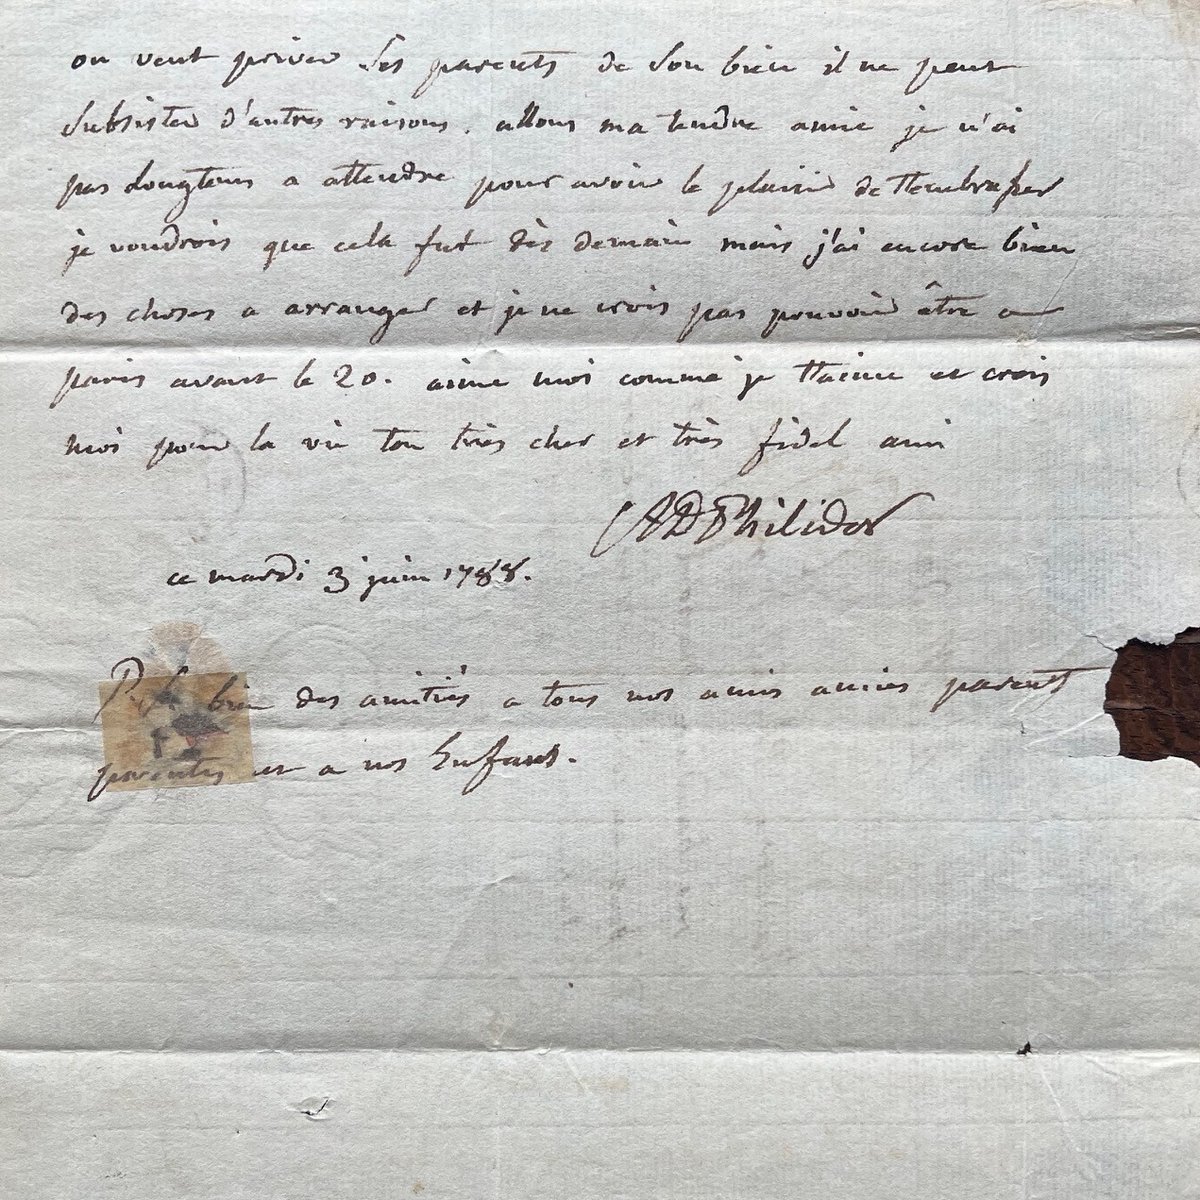 on veut priver ses parents de son bien il ne peut
subsister d'autres raisons. allons ma tendre amie je n'ai
pas longtems a attendre pour avoir le plaisir de t'embrasser
je voudrois que cela fut dès demain mais j'ai encore bien
des choses a arranger et je ne crois pas pouvoir être a
paris avant le 20. aime moi comme je t'aime et crois
moi pour la vie ton très cher et très fidel ami
AD Philidor
ce mardi 3 juin 1788.
bien des amitiés a tous nos amis amies parents
parentes et a nos Enfans.